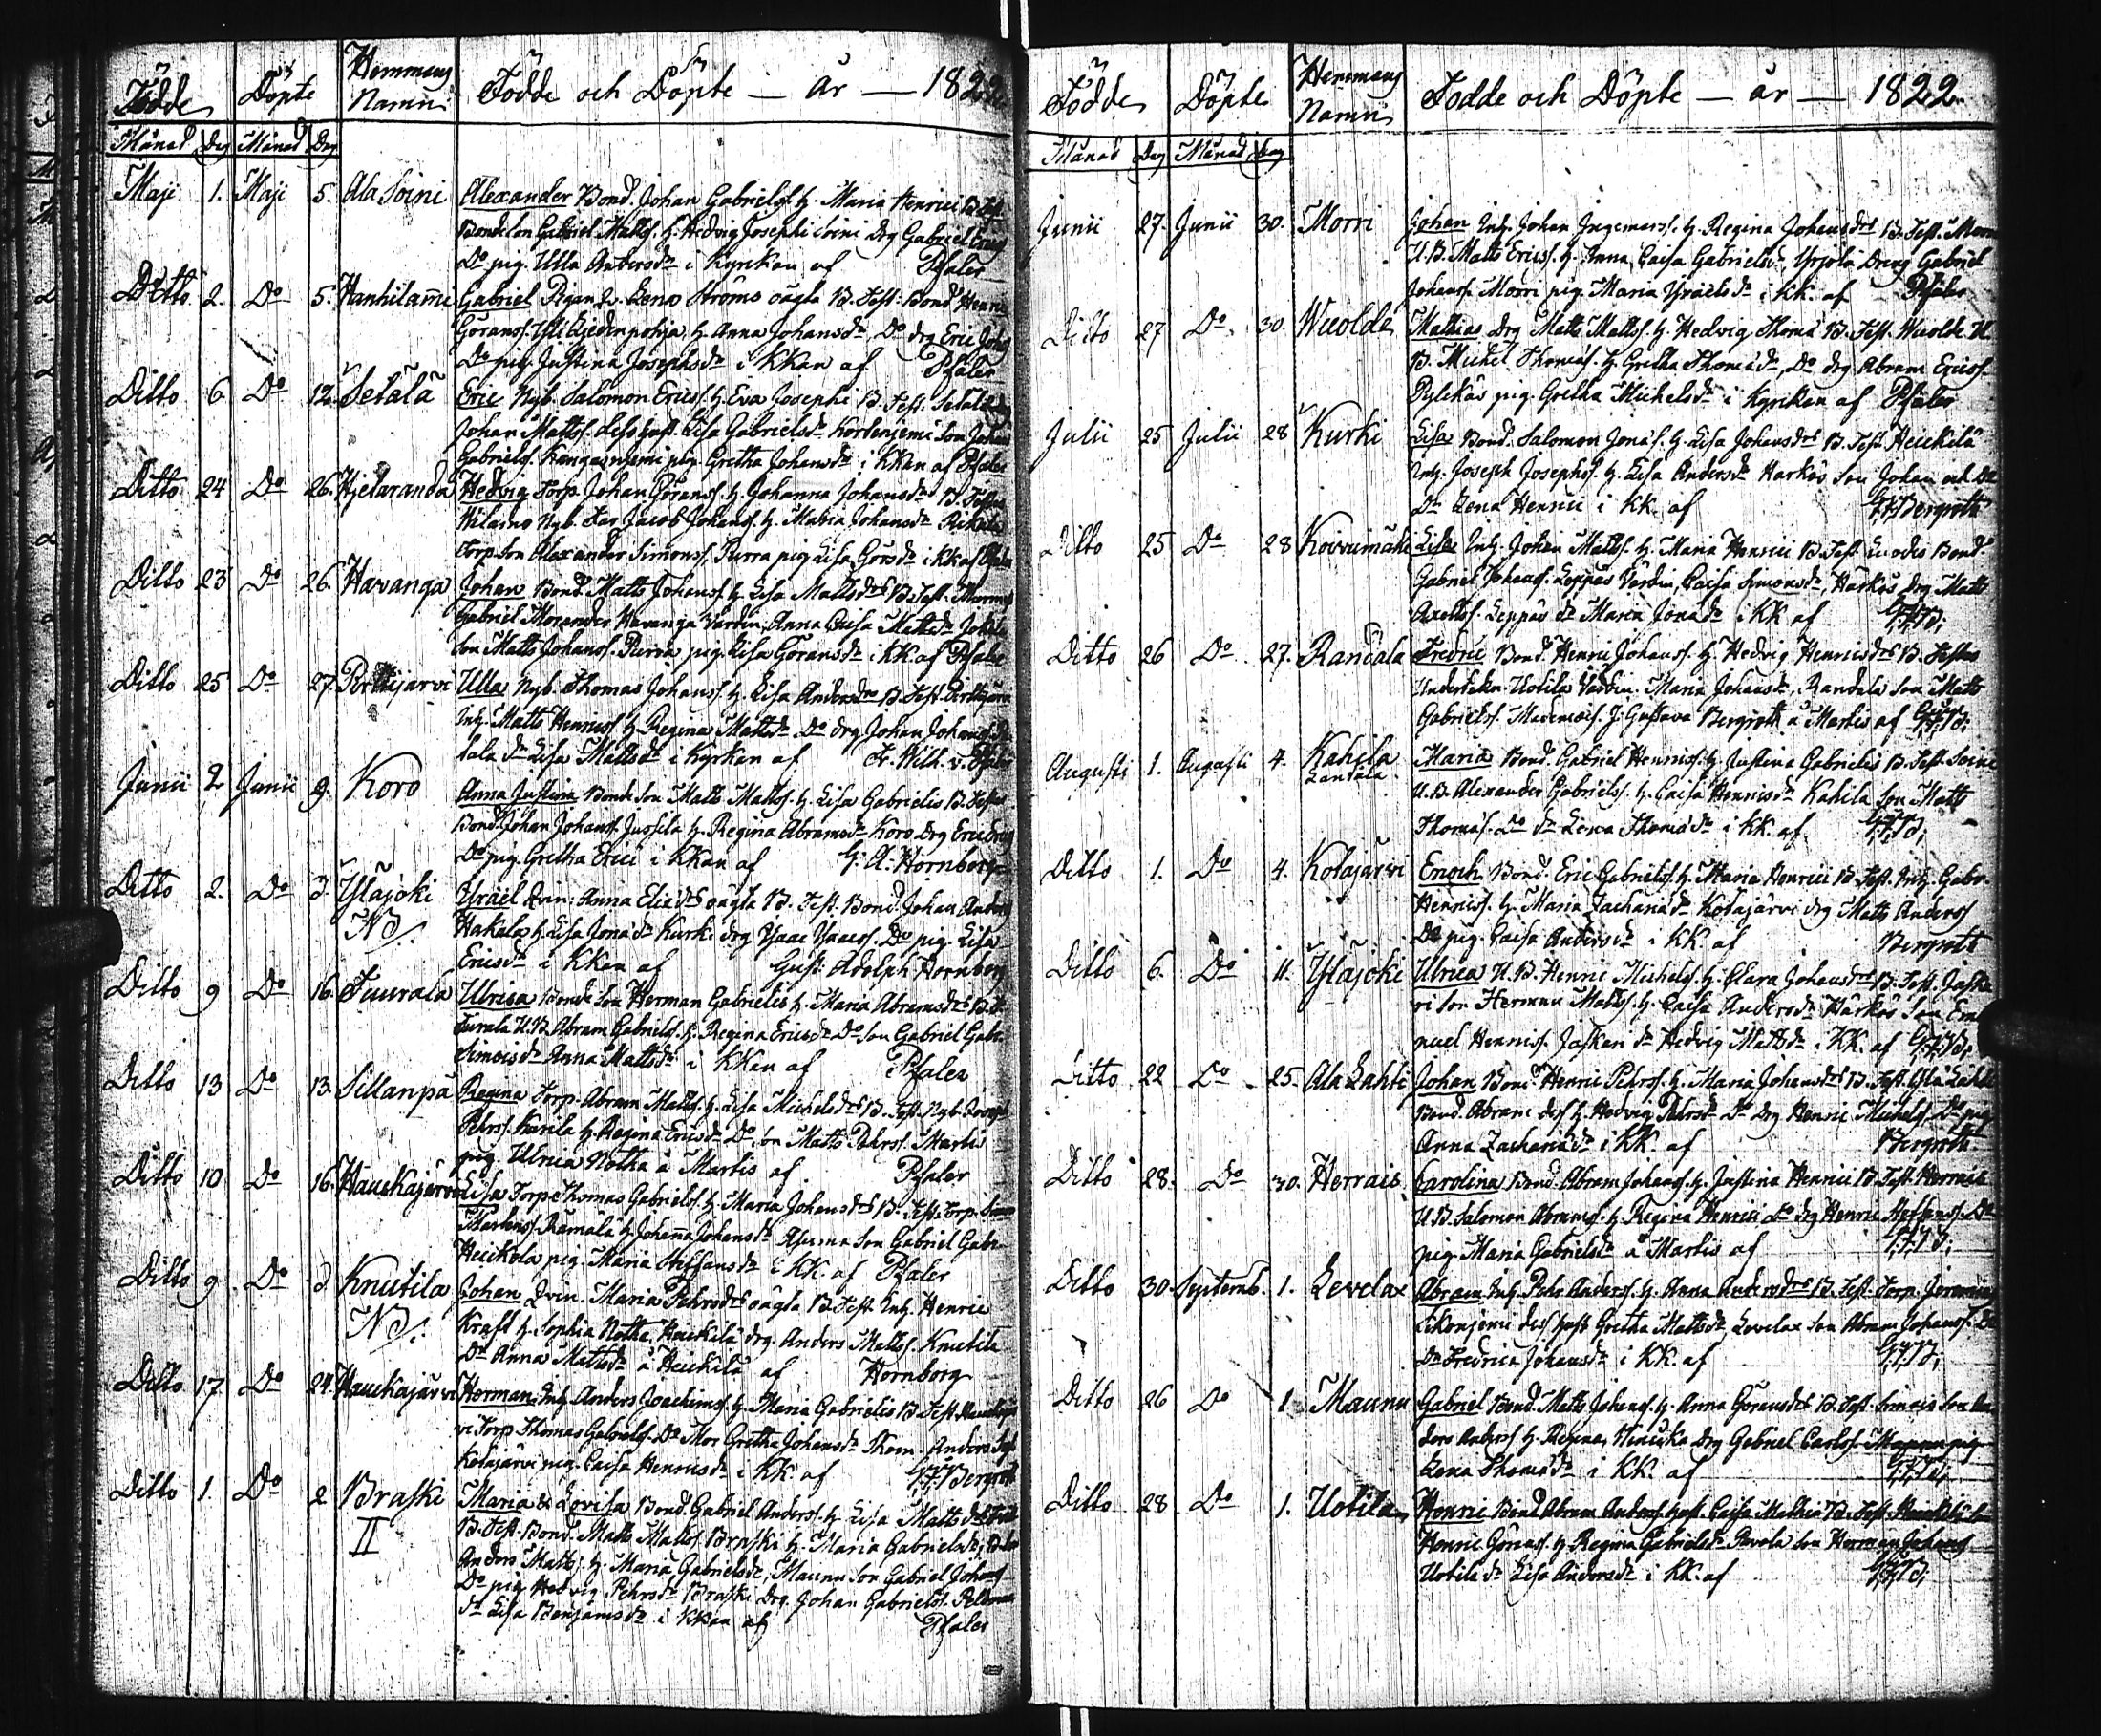 Födde Döpte Hemmans Namn Födde och Döpte — år — 1822
Månad Dag Månad Dag
Maji 1. Maji 5. Ala Soini Alexander Bond. Johan Gabrielss. h. Maria Henrici B. Test.
Bondeson Gabriel Matts. h. Hedvig Josephi Soini Drg Gabriel
Do pig. Ulla Andersdr i Kyrkan af Pfaler
Ditto 2. Do 5. Hanhilami Gabriel Pigan Lena Ströms oägta B. Test. Bond Henric
Göranss. Yli Liedenpohja, h. Anna Johansdr Do drg Eric Joh
Do pig. Justina Josephsdr i KKan af Pfaler
Ditto 6 Do 12 Setälä Eric Nyb. Salomon Ericss. h. Eva Josephi B. Test. Setälä
Johan Mattss. dess hust. Lisa Gabrielsdr Kortenjemi son Johan
Gabrielss. Kangasnjemi pig. Gretha Johansdr i KKan af Pfaler
Ditto 24 Do 26. Hjelaranda Hedvig Torp. Johan Göranss. h. Johanna Johansdr B. Test.
Nyb. Jacob Johanss. h. Maria Johansdr
Torp. son Alexander Simonss. Purra pig Lisa Görsdr i KK af Pfaler
Ditto 23 Do 26. Havanga Johan Bond. Matts Johanss. h. Lisa Mattsdr B. Test.
Gabriel Morander Havanga Värdin. Anna Caisa Mattsdr
son Matts Johanss. Purra pig. Lisa Göransdr i KK. af Pfaler
Ditto 25 Do 27. Perttijärvi Ulla Nyb. Thomas Johanss. h. Lisa Andersdr B. Test. Perttijärvi
Inh. Matts Henricss. h. Regina Mattsdr Do drg Johan Johanss.
Dr Lisa Mattsdr i Kyrkan af Fr. Wilh. v. Pfaler
Junii 2 Junii 9. Koro Anna Justina Bonde Son Matts Mattss. h. Lisa Gabrielis B. Test.
Bond. Johan Johanss. Jussila h. Regina Abramsdr Koro Drg Eric
Do pig. Gretha Erici i KKan af G. A. Hornborg
Ditto 2. Do 3. Ylajoki Israel Qvin. Anna Eliædr oägta B. Test. Bond. Johan Anders
NB. Hakala h. Lisa Jonædr Kurki drg Isaac Isaacss. Do pig. Lisa
Ericsdr i KKan af Gust. Adolph Hornborg
Ditto 9 Do 16. Tuurala Ulrica Bonde son Herman Gabrielis h. Maria Abramsdr B. T.
Turala U. B. Abram Gabrielss. h. Regina Ericsdr Do son Gabriel Gabr.
Simoisdr Anna Mattsdr i KKan af Pfaler
Ditto 13 Do 13. Sillanpä Regina Torp. Abram Mattss. h. Lisa Michelsdr B. Test. Nyb. Joseph
Pehrss. Karila h. Regina Ericsdr Do son Matts Pehrss. Martis
pig. Ulrica Notha å Martis af Pfaler
Ditto 10 Do 16. Haukajärvi Lisa Torp. Thomas Gabrielss. h. Maria Johansdr B. Test. Torp.
Martinss. Rämälä h. Johanna Johansdr Asuma son Gabriel Gabr.
Heickola pig. Maria Steffansdr i KK. af Pfaler
Ditto 9 Do 3. Knutila Johan Qvin. Maria Pehrsdr oägta B. Test. Inh. Henric
NB. Kraft h. Sophia Notha, Heickilä drg. Anders Mattss. Knutila
Dr Anna Mattsdr å Heickilä af Hornborg
Ditto 17. Do 24. Haukajärvi Herman Inh. Anders Joachimss. h. Maria Gabrielis B. Test. Haukajär
vi Torp Thomas Gabrielss. Do Mor Gretha Johansdr Anders
Kolajärvi pig. Caisa Henricsdr i KK. af G. F. Bergroth
Ditto 1. Do 2 Braski Maria & Lovisa Bond. Gabriel Anderss. h. Lisa Mattsdr
II B. Test. Bond. Matts Mattss. Braski h. Maria Gabrielsdr,
Anders Mattss. h. Maria Gabrielsdr, Maunu son Gabriel Johanss.
Do pig Hedvig Pehrsdr Braski Drg. Johan Gabrielss.
Dr Lisa Benjamsdr i KKan af Pfaler
Födde Döpte Hemmans Namn Födde och Döpte — år — 1822
Månad Dag Månad Dag
Junii 27. Junii 30. Morri Johan Inh. Johan Ingemarss. h. Regina Johansdr B. Test. Morri
U. B. Matts Ericss. h. Anna Caisa Gabrielsdr, Yrjola Dreng Gabriel
Johanss. Morri pig. Maria Israelsdr i KK. af Pfaler
Ditto 27 Do 30. Wuolde Mathias Drg Matts Mattss. h. Hedvig Thomæ B. Test. Wuolde U.
B. Michel Thomæs. h. Gretha Thomædr, Do drg Abram Ericss.
Pylckäs pig. Gretha Michelsdr i Kyrkan af Pfaler
Julii 25 Julii 28 Kurki Lisa Bond. Salomon Jonæs. h. Lisa Johansdr B. Test. Heickilä
Inh. Joseph Josephss. h. Lisa Andersdr Harkös son Johan och Do
Dr Lena Henrici i KK. af G. F. Bergroth
Ditto 25 Do 28 Koivumäki Lisa Inh. Johan Mattss. h. Maria Henrici B. Test. Luodes Bond.
Gabriel Johanss. Leppäs Värdin. Caisa Simonsdr, Härkös drg Matts
Axelss. Leppäs dr Maria Jonædr i KK af G. F. B.
Ditto 26 Do 27. Randala Fredric Bond. Henric Johanss. h. Hedvig Henricsdr B. Testes
Undertekn. Uotila Värdin. Maria Johansdr, Randala son Matts
Gabrielss. Mademois. J. Gustava Bergroth å Martis af G. F. B.
Augusti 1. Augusti 4. Kahila Maria Bond. Gabriel Henricss. h. Justina Gabrielis B. Test. Soini
Lantala. U. B. Alexander Gabrielss. h. Caisa Henricsdr Kahila son Matts
Thomæs. Do dr Lena Thomædr i KK. af G. F. B.
Ditto 1. Do 4. Kolajärvi Enoch Bond. Eric Gabrielss. h. Maria Henrici B. Test. Inh. Gabr.
Henricss. h. Maria Zachariædr Kolajärvi drg Matts Anderss
Do pig. Caisa Andersdr i KK. af Bergroth
Ditto 6. Do 11. Ylajoki Ulrica U. B. Henric Michelss. h. Clara Johansdr B. Test. Jaska
ri son Herman Mattss. h. Caisa Andersdr Härkös son Ema
nuel Henricss. Jaskari dr Hedvig Mattsdr i KK. af G. F. B.
Ditto 22 Do 25. Ala Lahti Johan Bond. Henric Pehrss. h. Maria Johansdr B. Test. Yla Lahti
Bond. Abram dess h. Hedvig Pehrsdr Do Drg Henric Michelss. Do pig
Anna Zachariædr i KK. af Bergroth
Ditto 28. Do 30. Herrais Carolina Bond. Abram Johanss. h. Justina Henrici B. Test. Herrais
U. B. Salomon Abramss. h. Regina Henrici Do drg Henric Steffanss. Do
pig. Maria Gabrielsdr å Martis af G. F. B.
Ditto 30 Septemb. 1. Levelax Abram Inh. Pehr Anderss. h. Anna Andersdr B. Test. Torp. Jeremias
Likonjemi dess hust Gretha Mattsdr, Levelax son Abram Johanss. Do
Dr Fredrica Johansdr i KK. af G. F. B.
Ditto 26 Do 1 Maunu Gabriel Bond. Matts Johanss. h. Anna Göransdr B. Test. Simois son An
ders Anderss h. Regina, Hericka Drg Gabriel Carlss. Maunu pig
Lena Thomædr i KK. af G. F. B.
Ditto 28 Do 1. Uotila Henric Bond. Abram Anderss. hust. Caisa Mathiæ B. Test.
Henric Göranss. h. Regina Gabrielsdr Pavola son Herman Johanss
Uotila dr Lisa Andersdr i KK. af G. F. B.